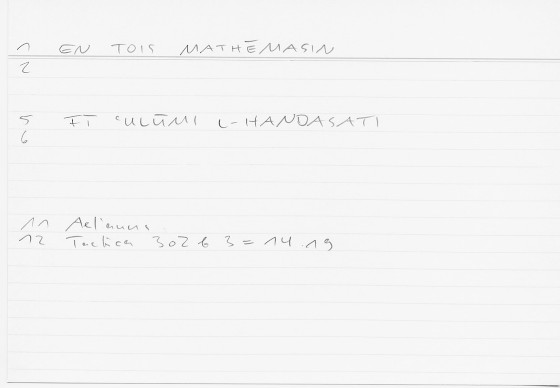 1 EN TOIS MATHĒMASIN
2
5 FĪ ʿULŪMI L-HANDASATI
6
11 Aelianus
12 Tactica 302 b 3 = 14.19